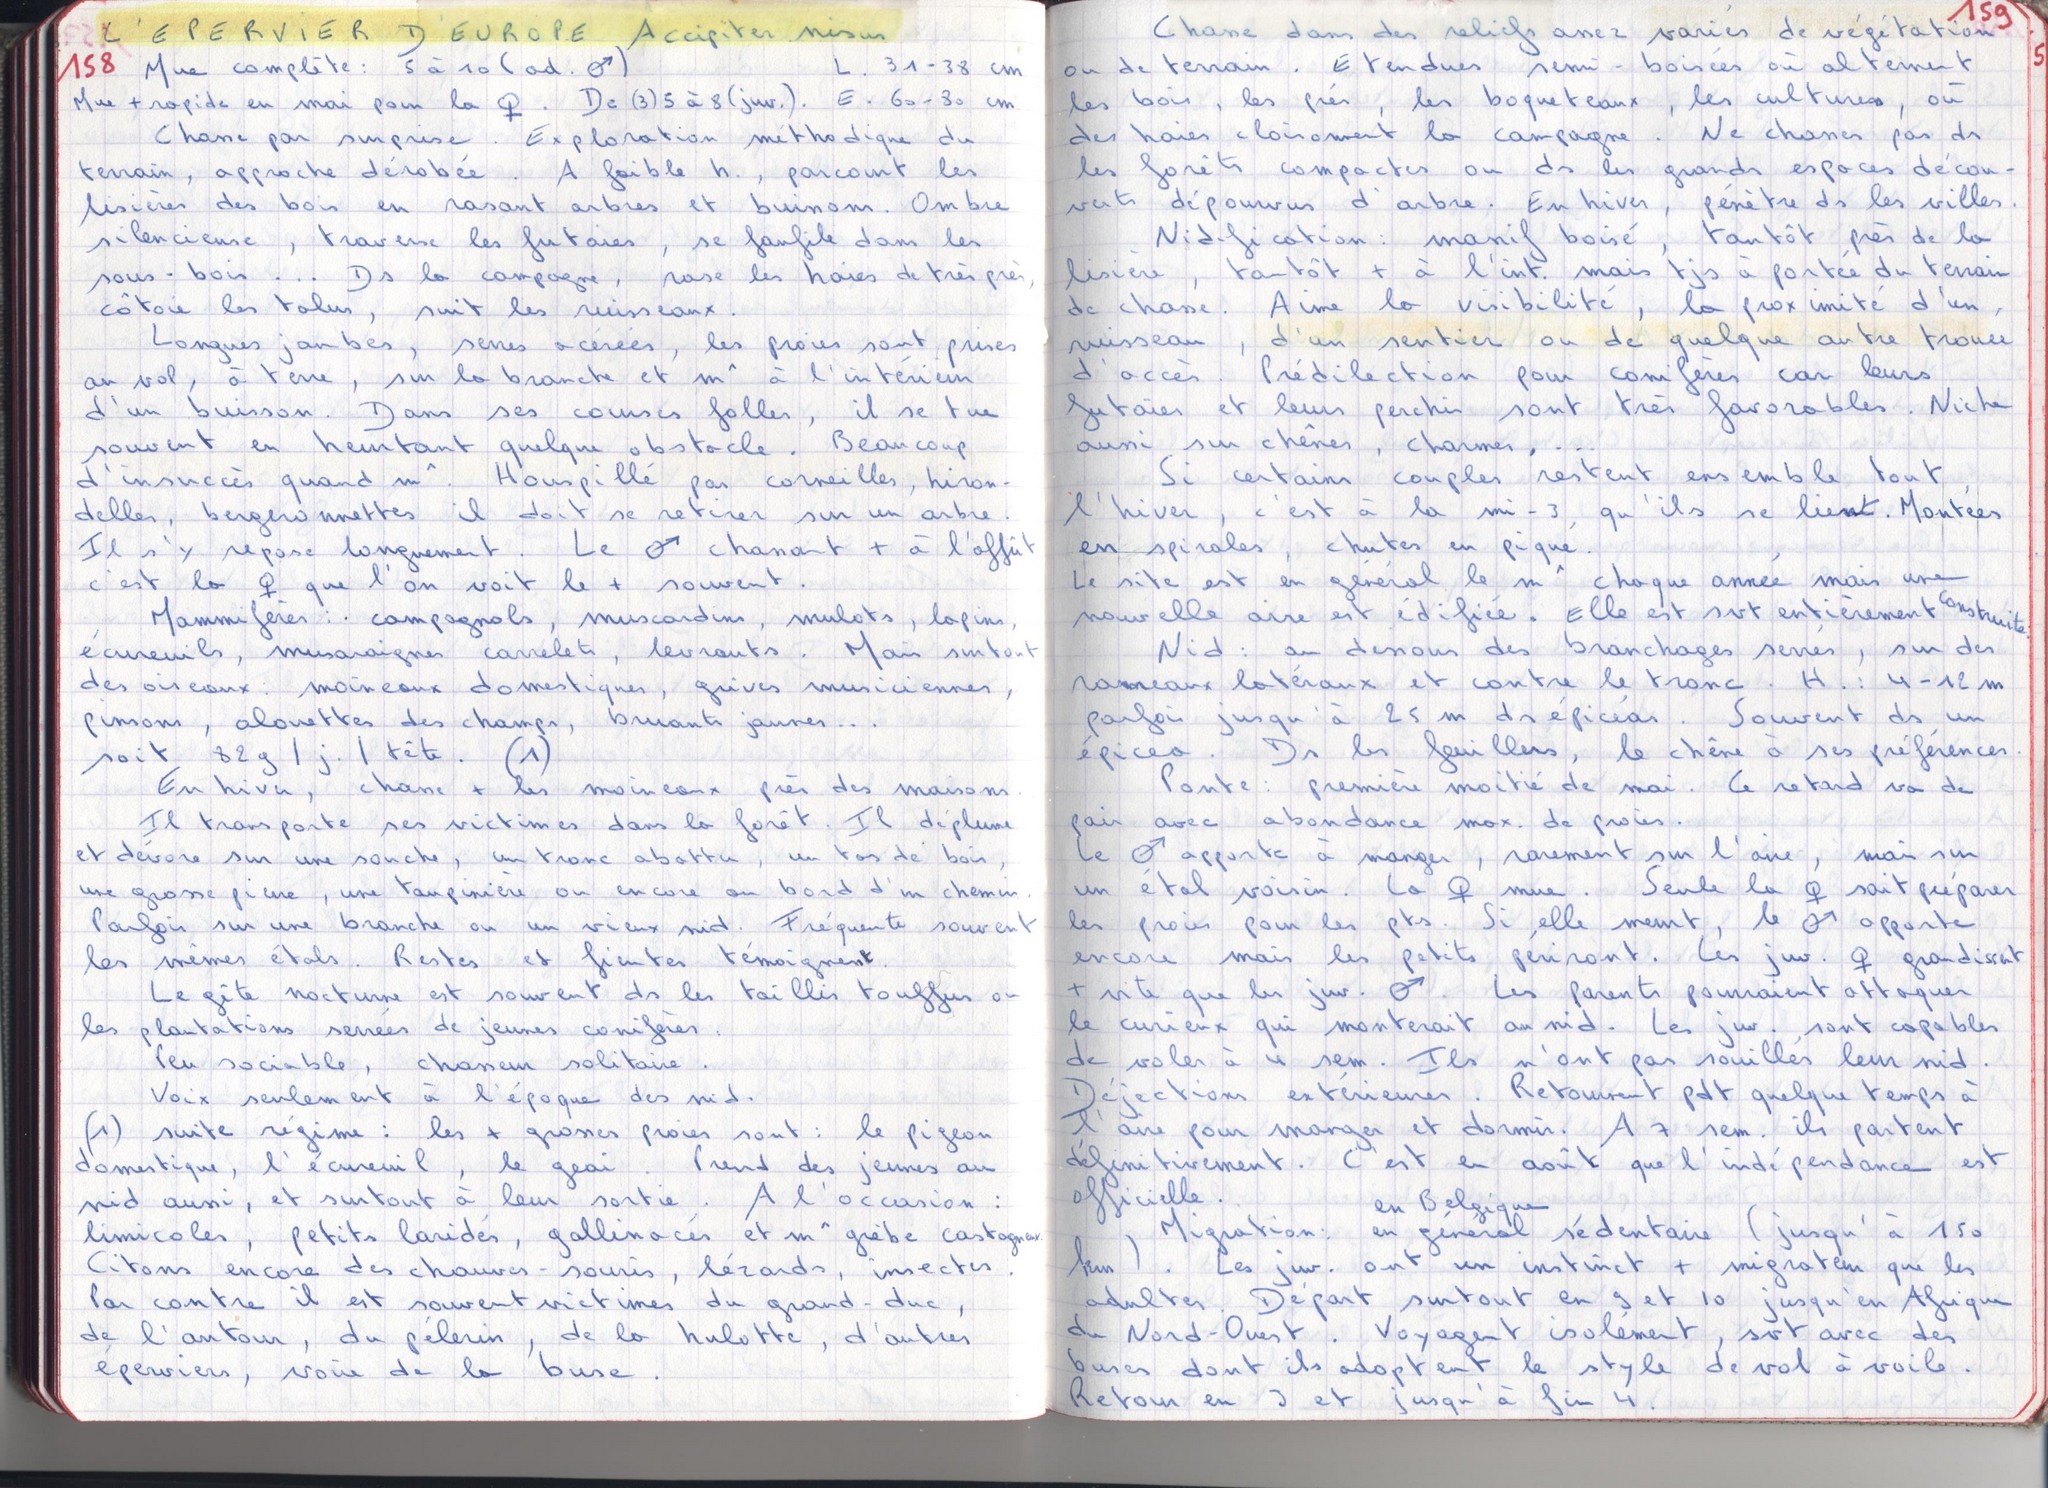 L'EPERVIER D'EUROPE Accipiter nisus
158 Mue complète : 5 à 10 (ad. ♂) L. 31-38 cm
Mue + rapide en mai pour la ♀. De (3) 5 à 8 (juv.). E. 60-80 cm
Chasse par surprise. Exploration méthodique du
terrain, approche dérobée. A faible h., parcourt les
lisières des bois en rasant arbres et buissons. Ombre
silencieuse, traverse les futaies, se faufile dans les
sous-bois ... Ds la campagne, rase les haies de très près,
côtoie les talus, suit les ruisseaux.
Longues jambes, serres acérées, les proies sont prises
au vol, à terre, sur la branche et m^ à l'intérieur
d'un buisson. Dans ses courses folles, il se tue
souvent en heurtant quelque obstacle. Beaucoup
d'insuccès quand m^. Houspillé par corneilles, hiron-
delles, bergeronnettes il doit se retirer sur un arbre.
Il s'y repose longuement. Le ♂ chassant + à l'affût
c'est la ♀ que l'on voit le + souvent.
Mammifères : campagnols, muscardins, mulots, lapins,
écureuils, musaraignes carrelets, levrauts. Mais surtout
des oiseaux : moineaux domestiques, grives musiciennes,
pinsons, alouettes des champs, bruants jaunes...
soit 82 g / j. / tête. (1)
En hiver, chasse + les moineaux près des maisons.
Il transporte ses victimes dans la forêt. Il déplume
et dévore sur une souche, un tronc abattu, un tas de bois,
une grosse pierre, une taupinière ou encore au bord d'un chemin.
Parfois sur une branche ou un vieux nid. Fréquente souvent
les mêmes étals. Restes et fientes témoignent.
Le gîte nocturne est souvent ds les taillis touffus ou
les plantations serrées de jeunes conifères.
Peu sociable, chasseur solitaire.
Voix seulement à l'époque des nid.
(1) suite régime : les + grosses proies sont : le pigeon
domestique, l'écureuil, le geai. Prend des jeunes au
nid aussi, et surtout à leur sortie. A l'occasion :
limicoles, petits laridés, gallinacés et m^ grèbe castagneux.
Citons encore des chauves-souris, lézards, insectes.
Par contre il est souvent victimes du grand-duc,
de l'autour, du pélerin, de la hulotte, d'autres
éperviers, voire de la buse.
159
Chasse dans des reliefs assez variés de végétation
ou de terrain. Etendues semi-boisées où alternent
les bois, les prés, les boqueteaux, les cultures, où
des haies cloisonnent la campagne. Ne chasse pas ds
les forêts compactes ou ds les grands espaces décou-
verts dépourvus d'arbre. En hiver, pénètre ds les villes.
Nidification : massif boisé, tantôt près de la
lisière, tantôt + à l'int. mais tjs à portée du terrain
de chasse. Aime la visibilité, la proximité d'un
ruisseau, d'un sentier ou de quelque autre trouée
d'accès. Prédilection pour conifères car leurs
futaies et leurs perchis sont très favorables. Niche
aussi sur chênes, charmes, ...
Si certains couples restent ensemble tout
l'hiver, c'est à la mi-3 qu'ils se lient. Montées
en spirales, chutes en piqué.
Le site est en général le m^ chaque année mais une
nouvelle aire est édifiée. Elle est svt entièrement construite.
Nid : au dessous des branchages serrés, sur des
rameaux latéraux et contre le tronc. H. : 4-12 m
parfois jusqu'à 25 m ds épicéas. Souvent ds un
épicea. Ds les feuillus, le chêne à ses préférences.
Ponte : première moitié de mai. Ce retard va de
pair avec abondance max. de proies.
Le ♂ apporte à manger, rarement sur l'aire, mais sur
un étal voisin. La ♀ mue. Seule la ♀ sait préparer
les proies pour les pts. Si elle meurt, le ♂ apporte
encore mais les petits périront. Les juv. ♀ grandissent
+ vite que les juv. ♂. Les parents pourraient attaquer
le curieux qui monterait au nid. Les juv. sont capables
de voler à 4 sem. Ils n'ont pas souillés leur nid.
Déjections extérieures. Retournent pdt quelque temps à
l'aire pour manger et dormir. A 7 sem. ils partent
définitivement. C'est en août que l'indépendance est
officielle.
en Belgique
Migration : en général sédentaire (jusqu'à 150
km). Les juv. ont un instinct + migrateur que les
adultes. Départ surtout en 9 et 10 jusqu'en Afrique
du Nord-Ouest. Voyagent isolément, svt avec des
buses dont ils adoptent le style de vol à voile.
Retour en 3 et jusqu'à fin 4.